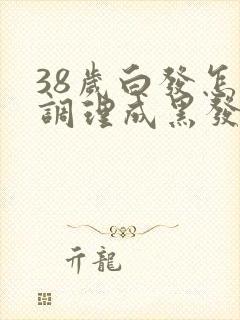 38歲白發怎
調理成黑發
亓龍